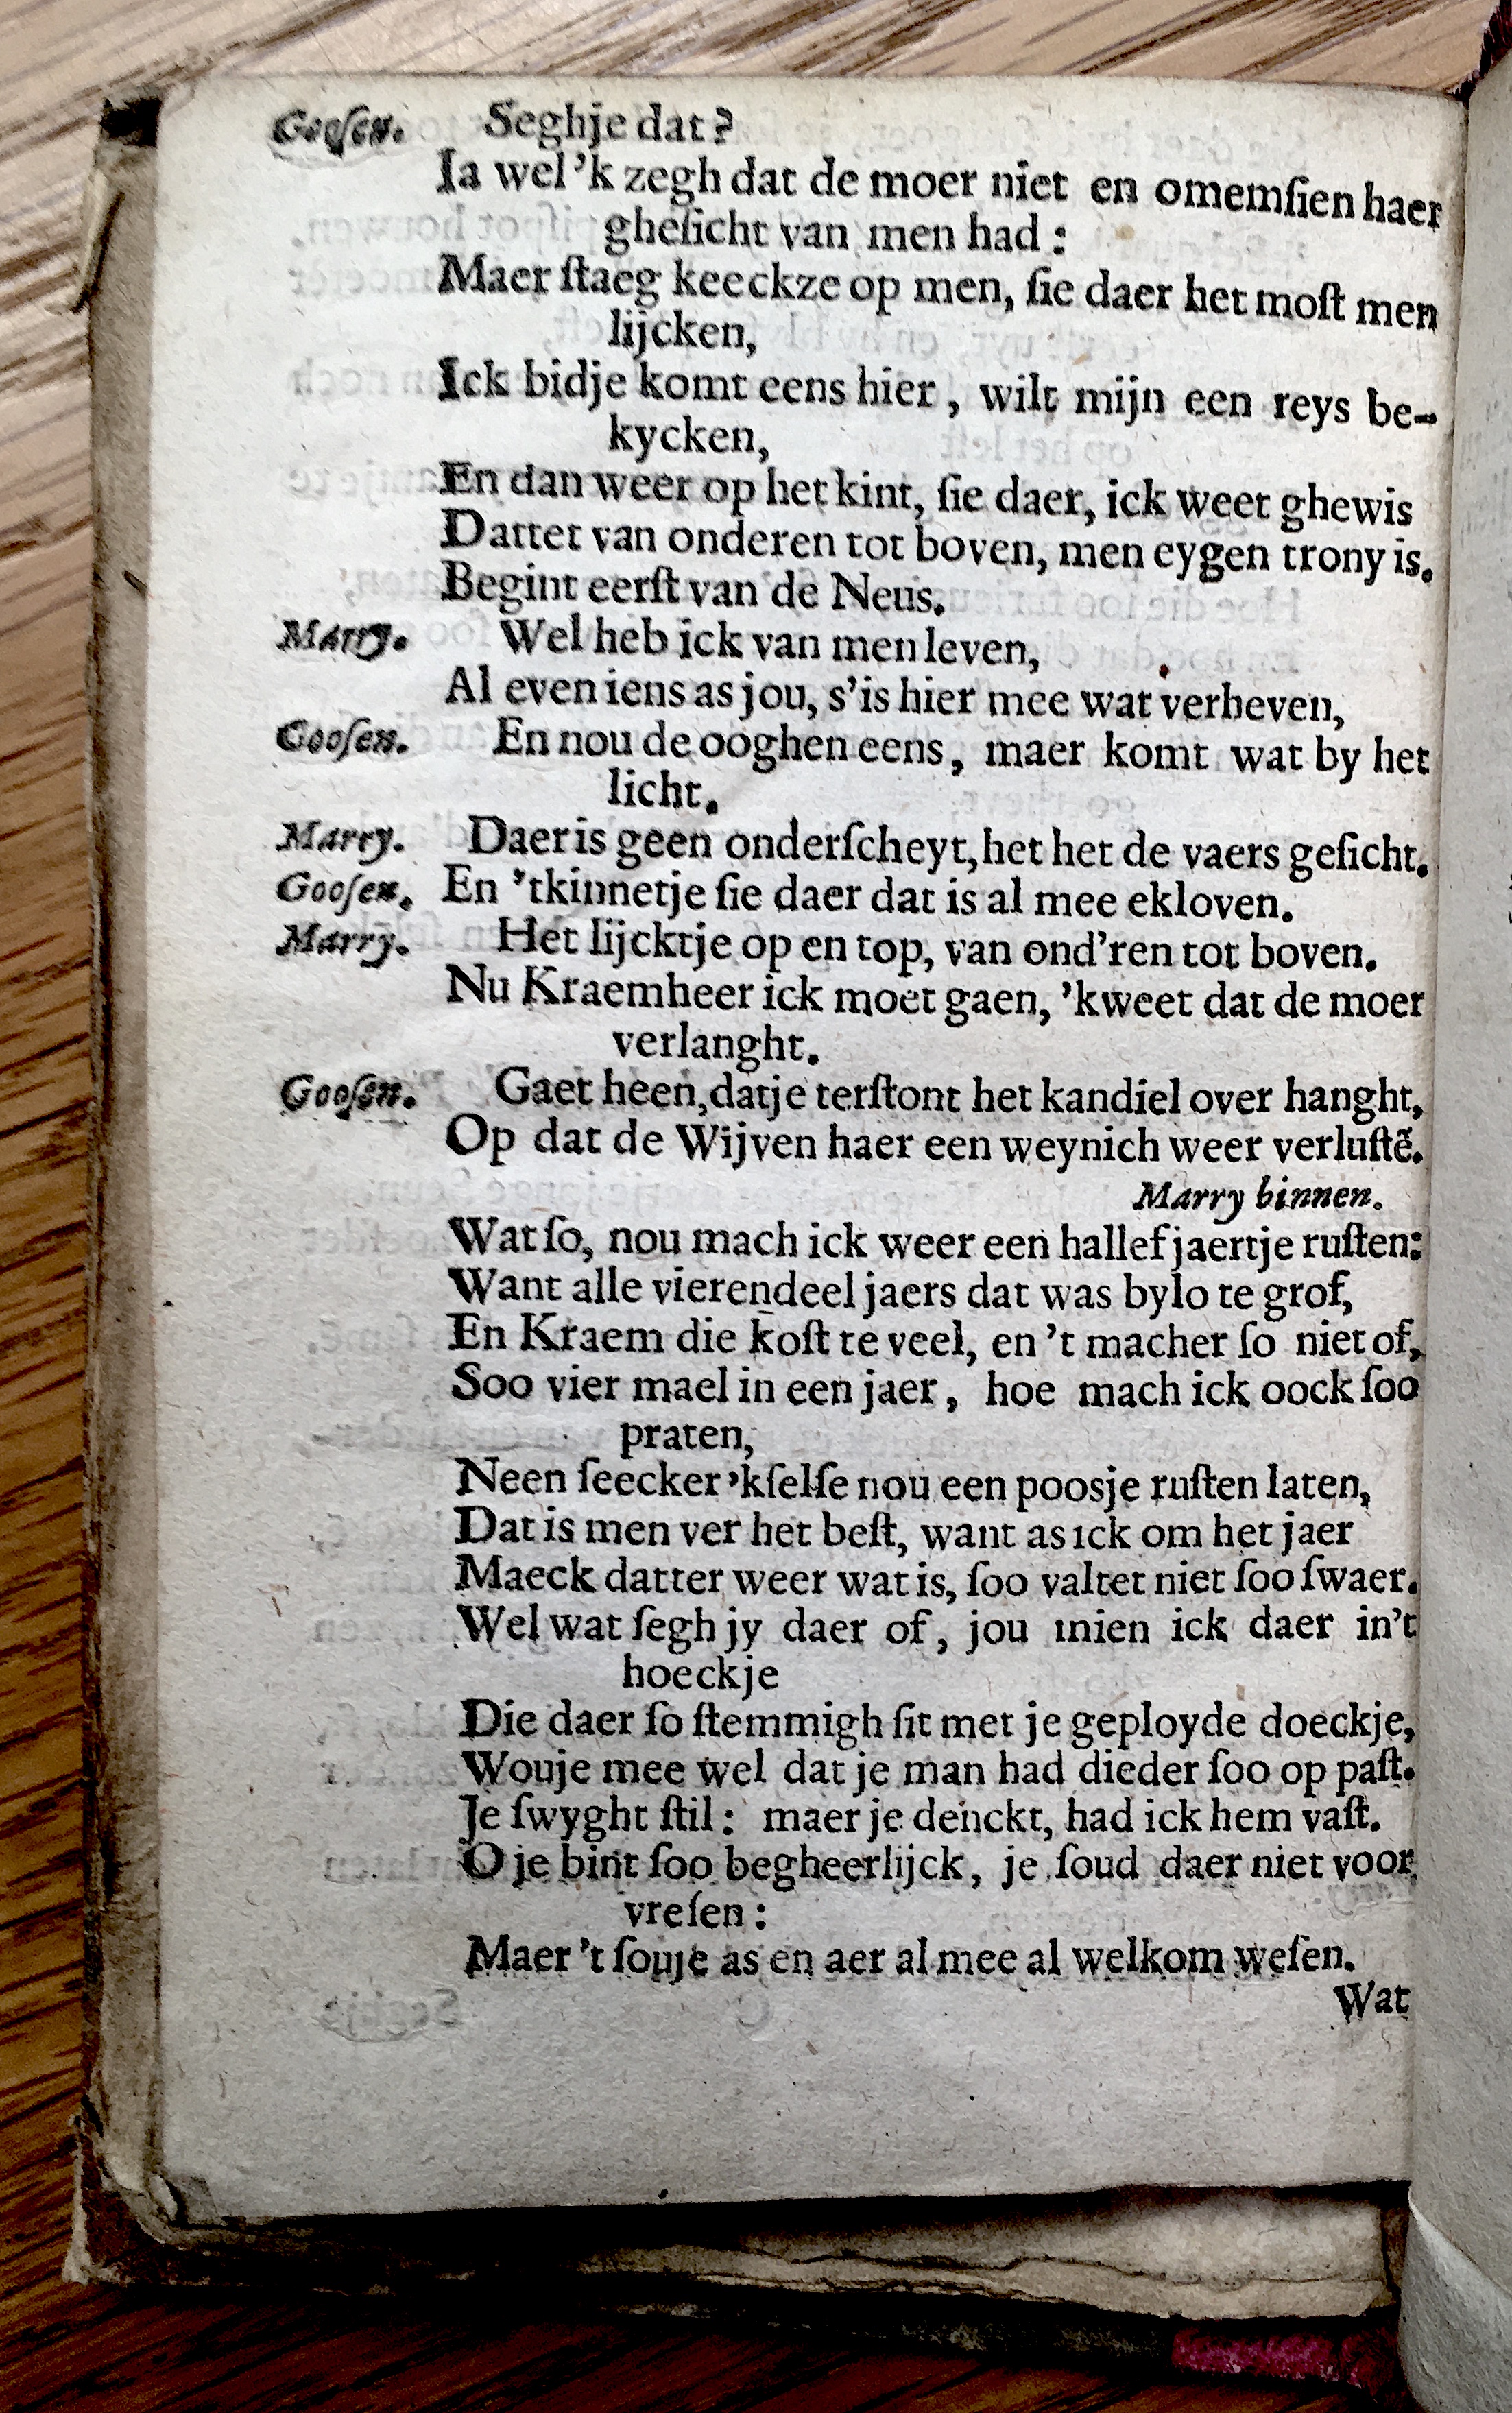 Gooſen. Seghje dat?
Ia wel 'k zegh dat de moer niet en omemſien haer
gheſicht van men had:
Maer ſtaeg keeckze op men, ſie daer het moſt men
lijcken,
Ick bidje komt eens hier, wilt mijn een reys be-
kycken,
En dan weer op het kint, ſie daer, ick weet ghewis
Dattet van onderen tot boven, men eygen trony is.
Begint eerſt van de Neus.
Marry. Wel heb ick van men leven,
Al even iens as jou, s'is hier mee wat verheven,
Gooſen. En nou de ooghen eens, maer komt wat by het
licht.
Marry. Daer is geen onderſcheyt, het het de vaers geſicht.
Gooſen. En 'tkinnetje ſie daer dat is al mee ekloven.
Marry. Het lijcktje op en top, van ond'ren tot boven.
Nu Kraemheer ick moet gaen, 'kweet dat de moer
verlanght.
Gooſen. Gaet heen, datje terſtont het kandiel over hanght,
Op dat de Wijven haer een weynich weer verluſtẽ.
Marry binnen.
Wat ſo, nou mach ick weer een hallef jaertje ruſten:
Want alle vierendeel jaers dat was bylo te grof,
En Kraem die koſt te veel, en 't macher ſo niet of,
Soo vier mael in een jaer, hoe mach ick oock ſoo
praten,
Neen ſeecker 'kſelſe nou een poosje ruſten laten,
Dat is men ver het beſt, want as ick om het jaer
Maeck datter weer wat is, ſoo valtet niet ſoo ſwaer.
Wel wat ſegh jy daer of, jou mien ick daer in't
hoeckje
Die daer ſo ſtemmigh ſit met je geployde doeckje,
Wouje mee wel dat je man had dieder ſoo op paſt.
Je ſwyght ſtil: maer je denckt, had ick hem vaſt.
O je bint ſoo begheerlijck, je ſoud daer niet voor
vreſen:
Maer 't ſouje as en aer al mee al welkom weſen.
Wat